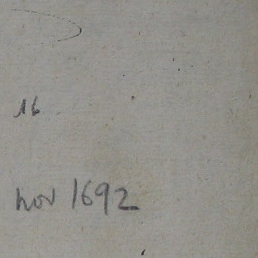 16
nov 1692